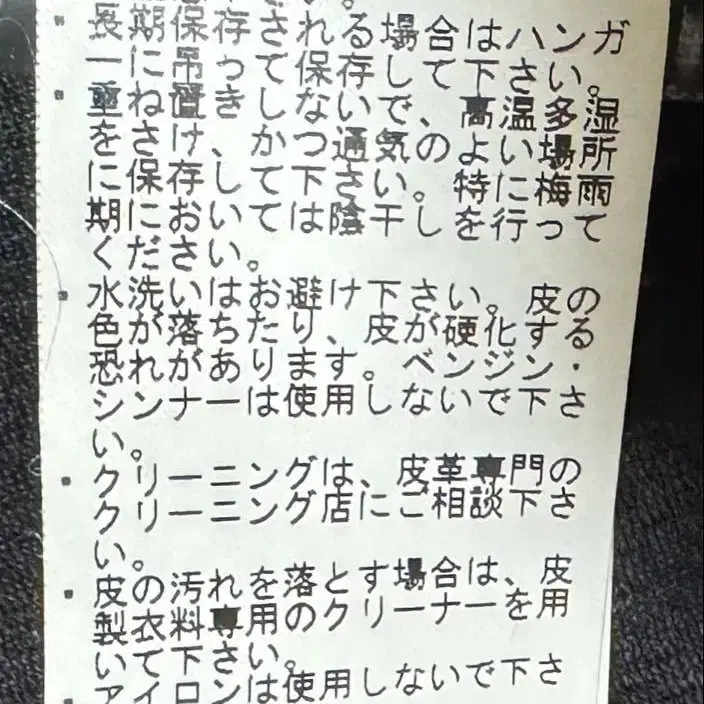 ・長期保存される場合はハンガ
ーに吊って保存して下さい。
・重ね置きしないで、高温多湿
をさけ、かつ通気のよい場所
に保存して下さい。特に梅雨
期においては陰干しを行って
ください。
・水洗いはお避け下さい。皮の
色が落ちたり、皮が硬化する
恐れがあります。ベンジン・
シンナーは使用しないで下さ
い。
・クリーニングは、皮革専門の
クリーニング店にご相談下さ
い。
・皮の汚れを落とす場合は、皮
製衣料専用のクリーナーを用
いて下さい。
・アイロンは使用しないで下さ